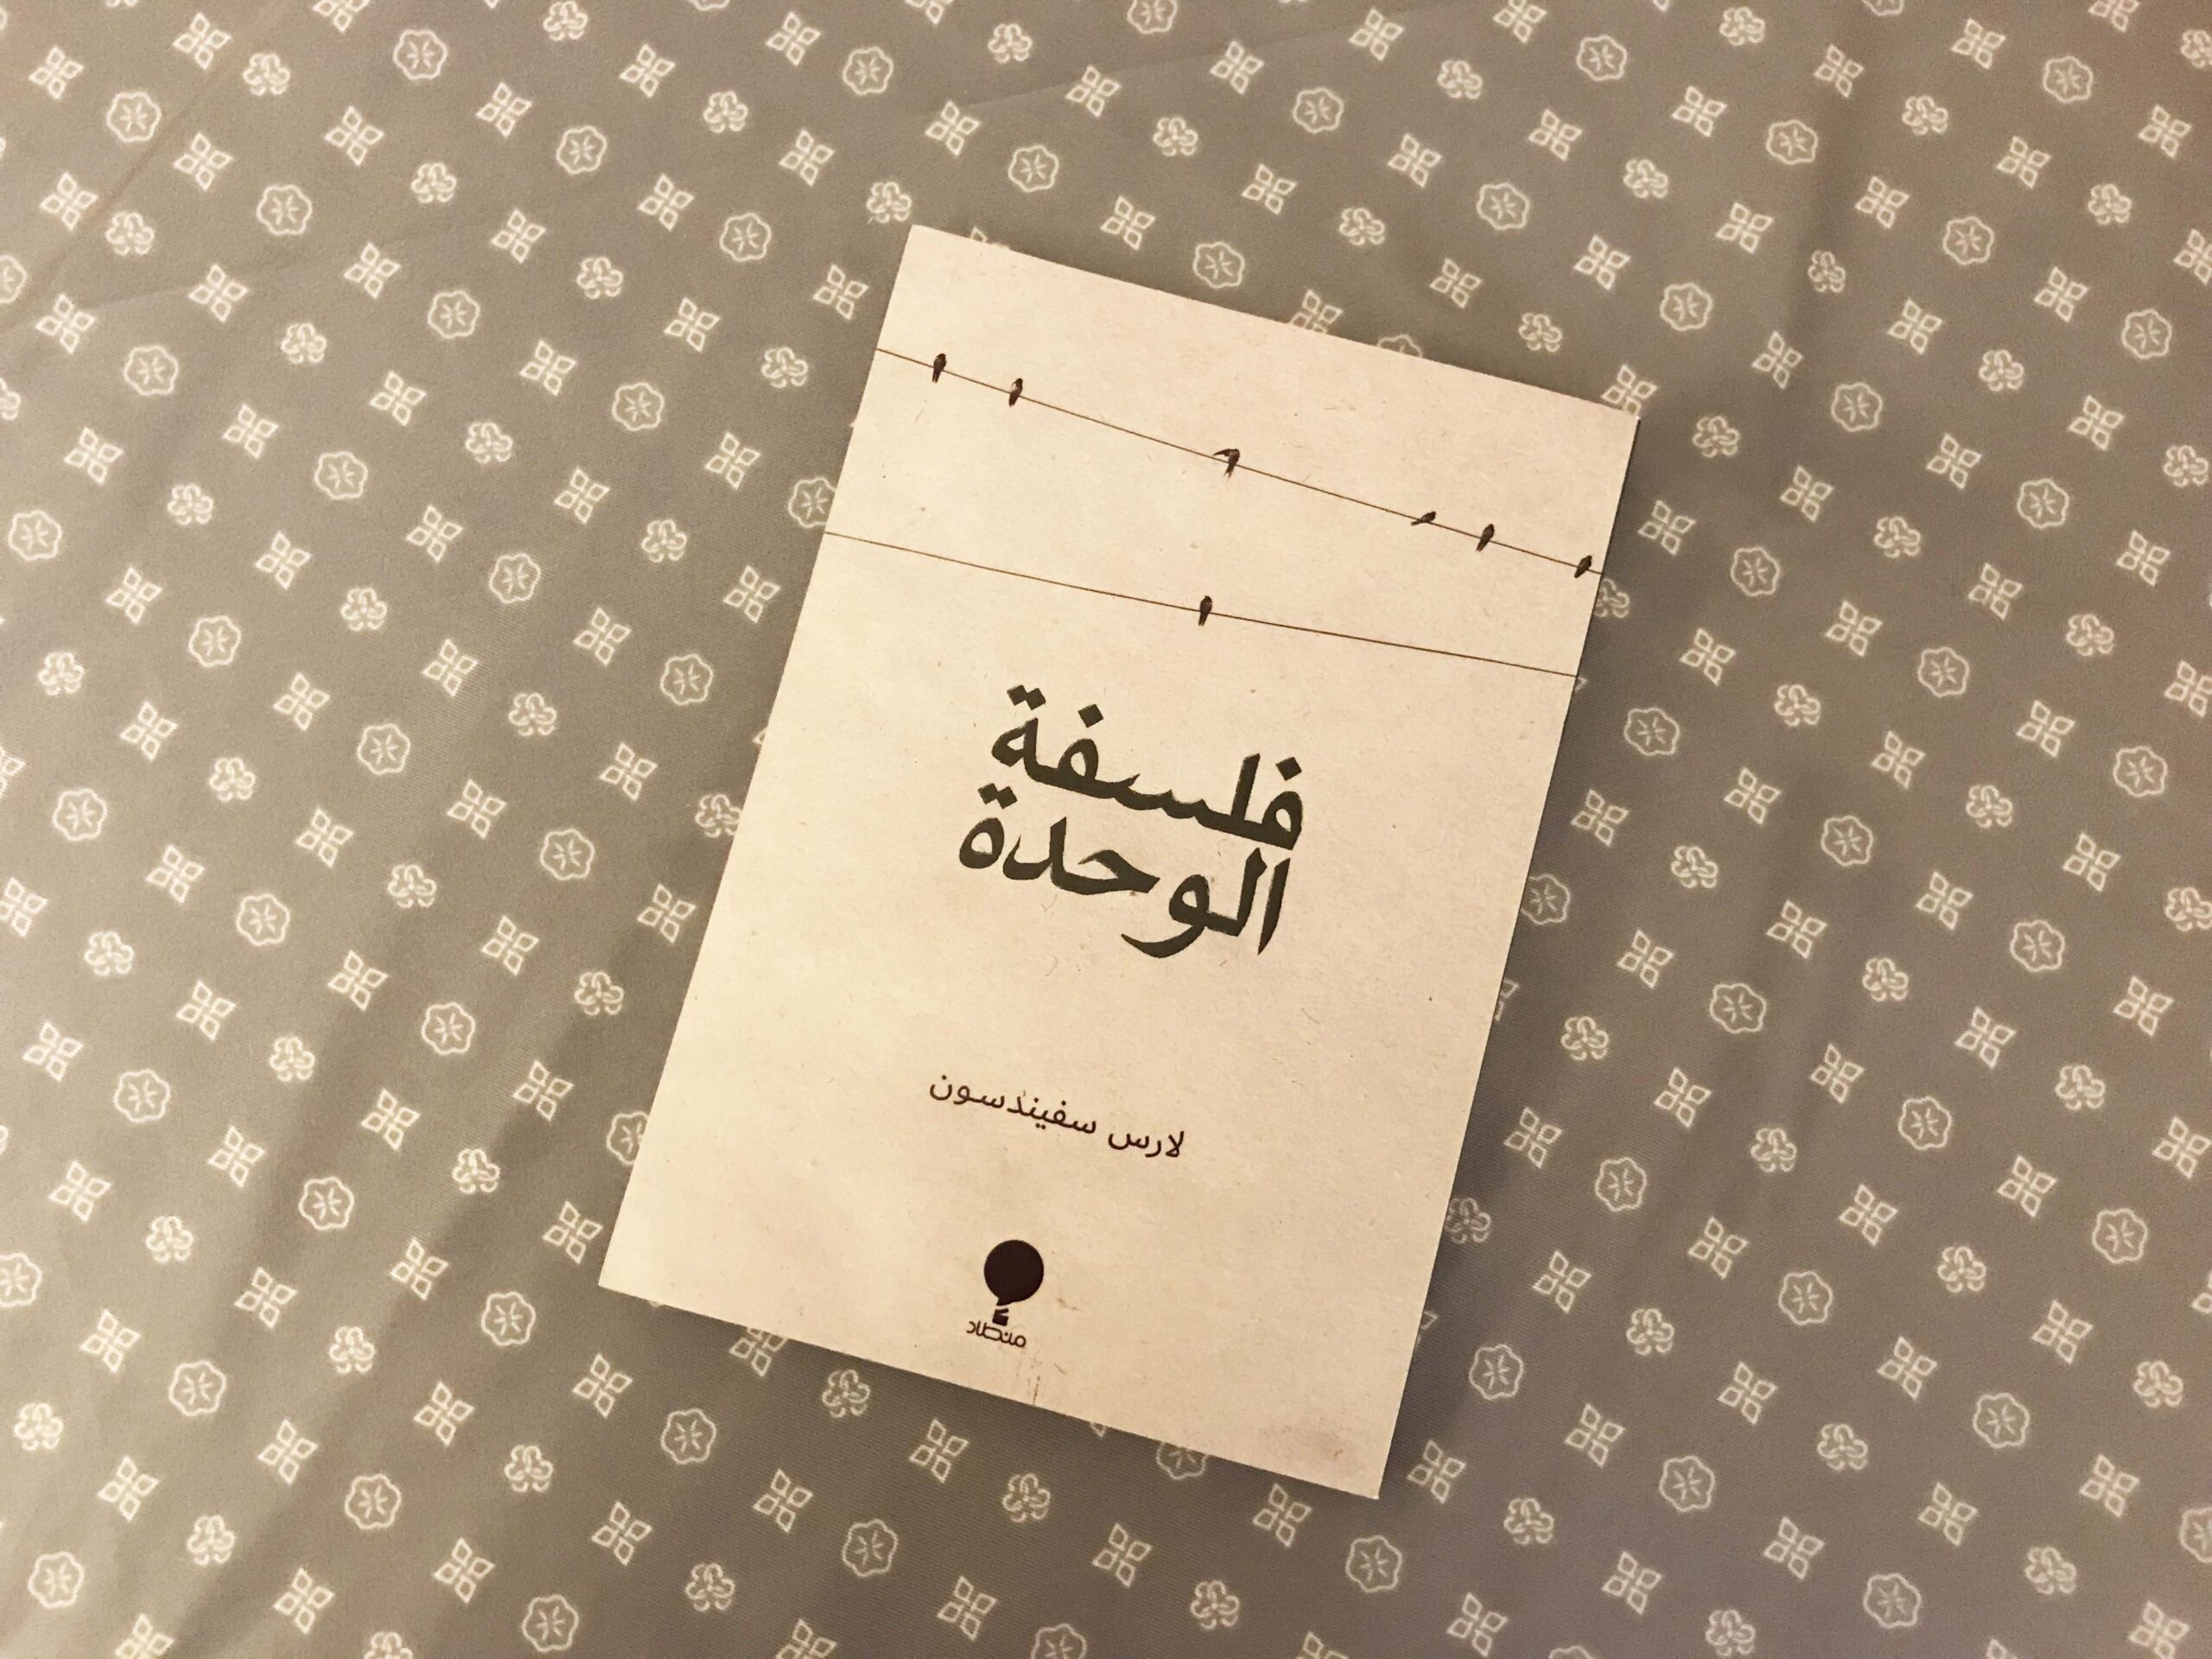 فلسفة
الوحدة
لارس سفيندسون
منطاد